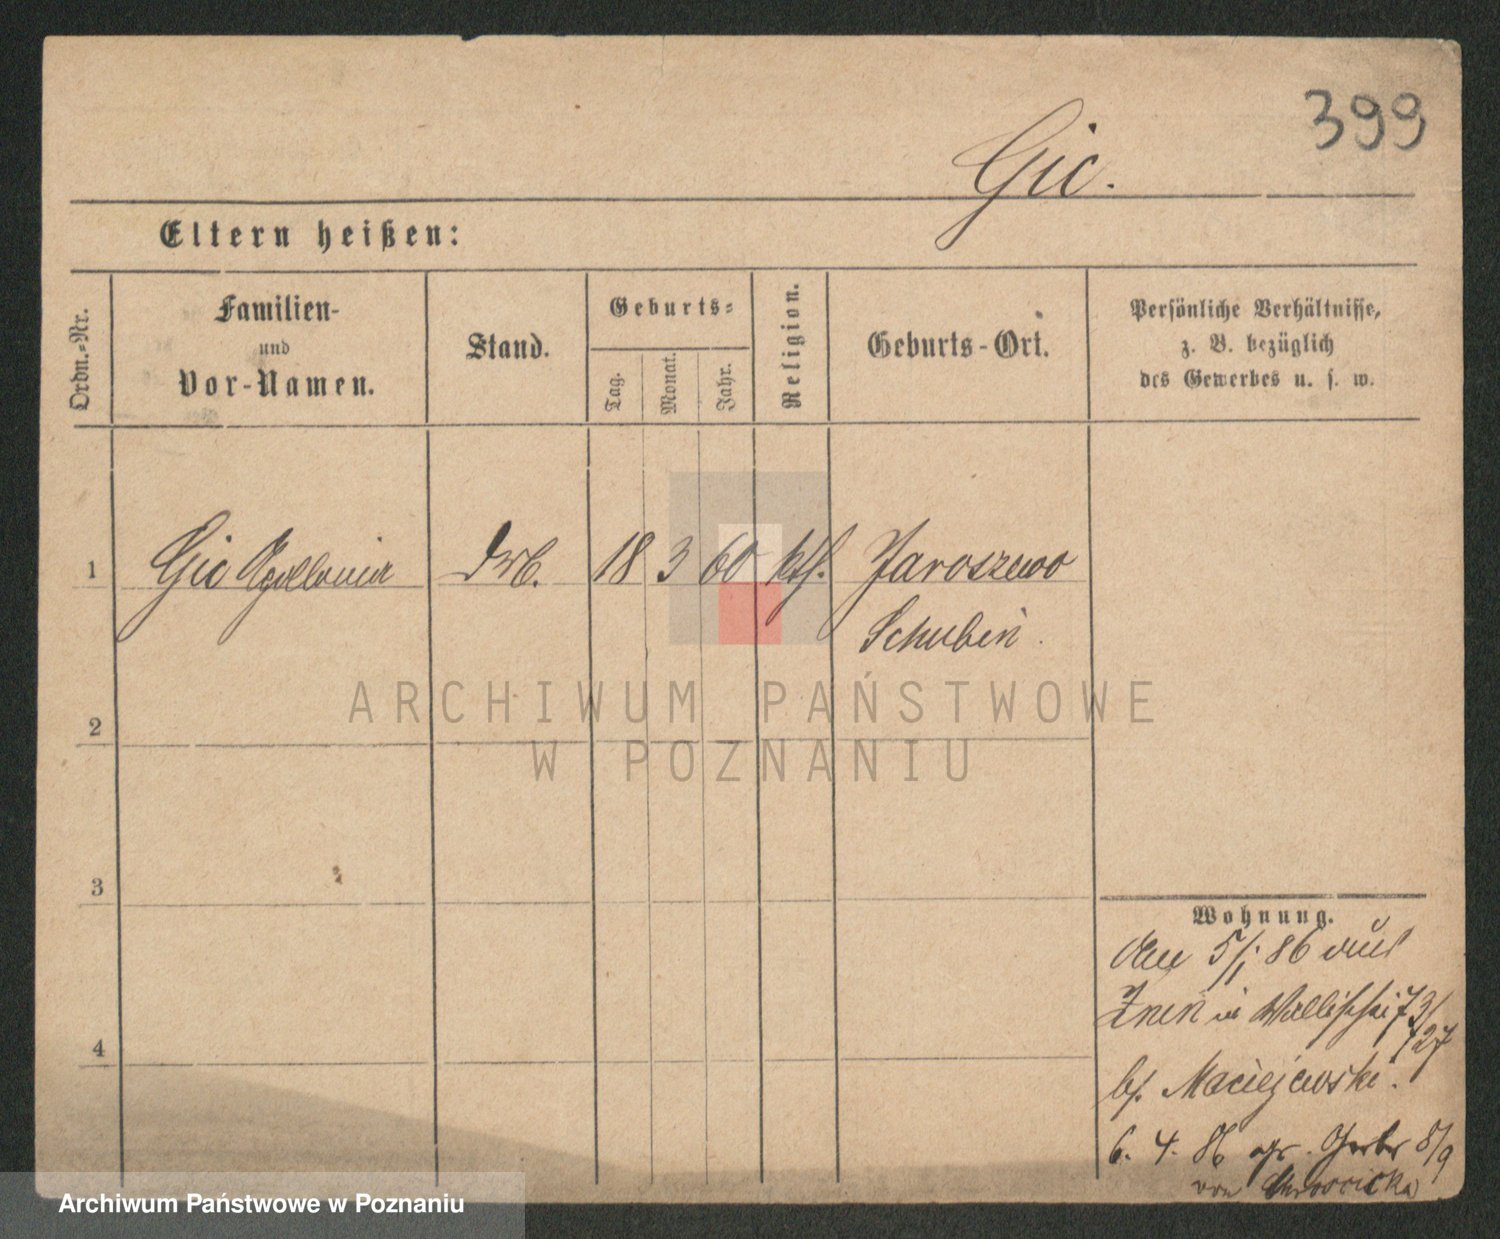 399
Gic.
Eltern heißen:
Ordn.=Nr.
Familien-
und
Vor-Namen.
Stand.
Geburts=
Tag.
Monat.
Jahr.
Religion.
Geburts-Ort.
Persönliche Verhältnisse,
z. B. bezüglich
des Gewerbes u. s. w.
1 Gic Apollonia 18 3 60 kth. Jaroszewo
Schubin.
2
3
4
Wohnung.
5/1 86 aus
Znin in Wallischei 73/
/27
bei Maciejewski.
6. 4. 86 Gerbr 8/9
von
ARCHIWUM PAŃSTWOWE
W POZNANIU
Archiwum Państwowe w Poznaniu